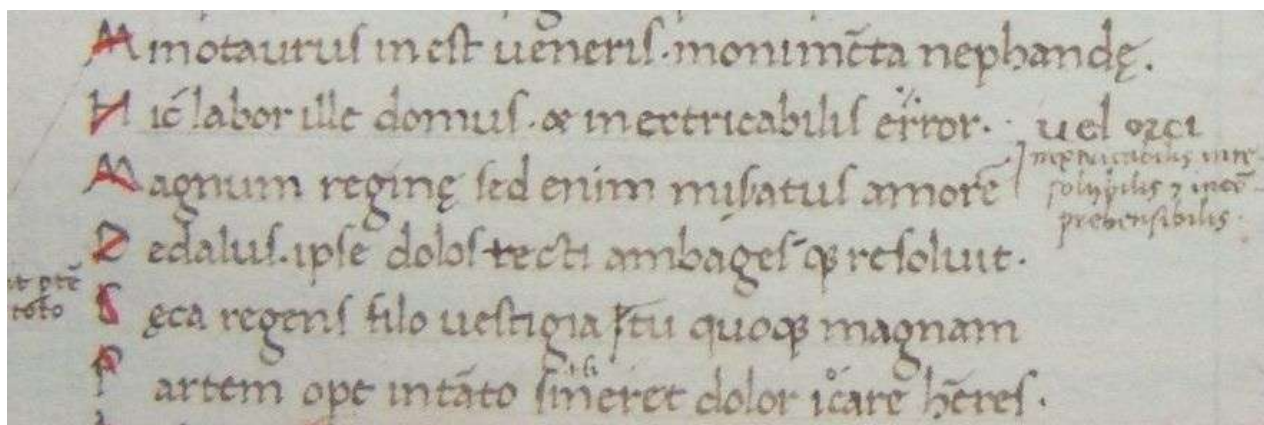 Minotaurus inest ueneris. monimēta nephandę.
Hic̄ labor ille domus. & inextricabilis error. uel orci
Magnum reginę sed enim miseratus amorē
solubilis
prehensibilis.
Dedalus. ipse dolos tecti ambages qꝫ resoluit.
toto
Cęca regens filo uestigia / tu quoqꝫ magnam
Partem ope in tāto sineret dolor icare hēres.